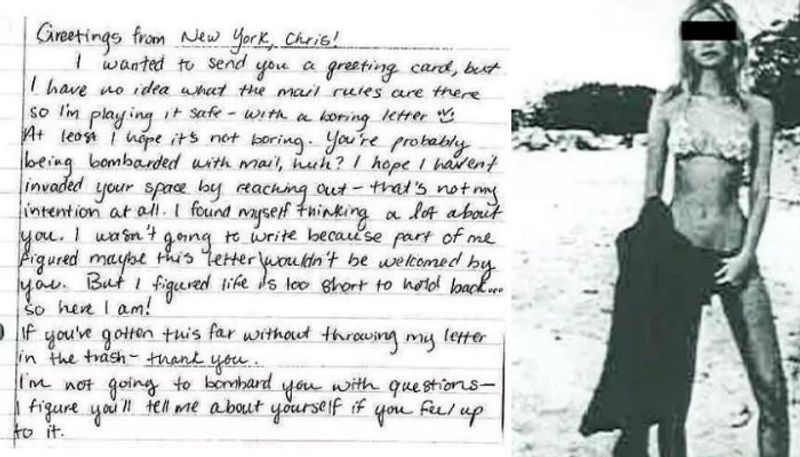 Greetings from New York, Chris!
I wanted to send you a greeting card, but
I have no idea what the mail rules are there
so I'm playing it safe - with a boring letter
At least I hope it's not boring. You're probably
being bombarded with mail, huh? I hope I haven't
invaded your space by reaching out - that's not my
intention at all. I found myself thinking a lot about
you. I wasn't going to write because part of me
figured maybe this letter wouldn't be welcomed by
you. But I figured life is too short to hold back...
so here I am!
If you've gotten this far without throwing my letter
in the trash - thank you.
I'm not going to bombard you with questions -
I figure you'll tell me about yourself if you feel up
to it.